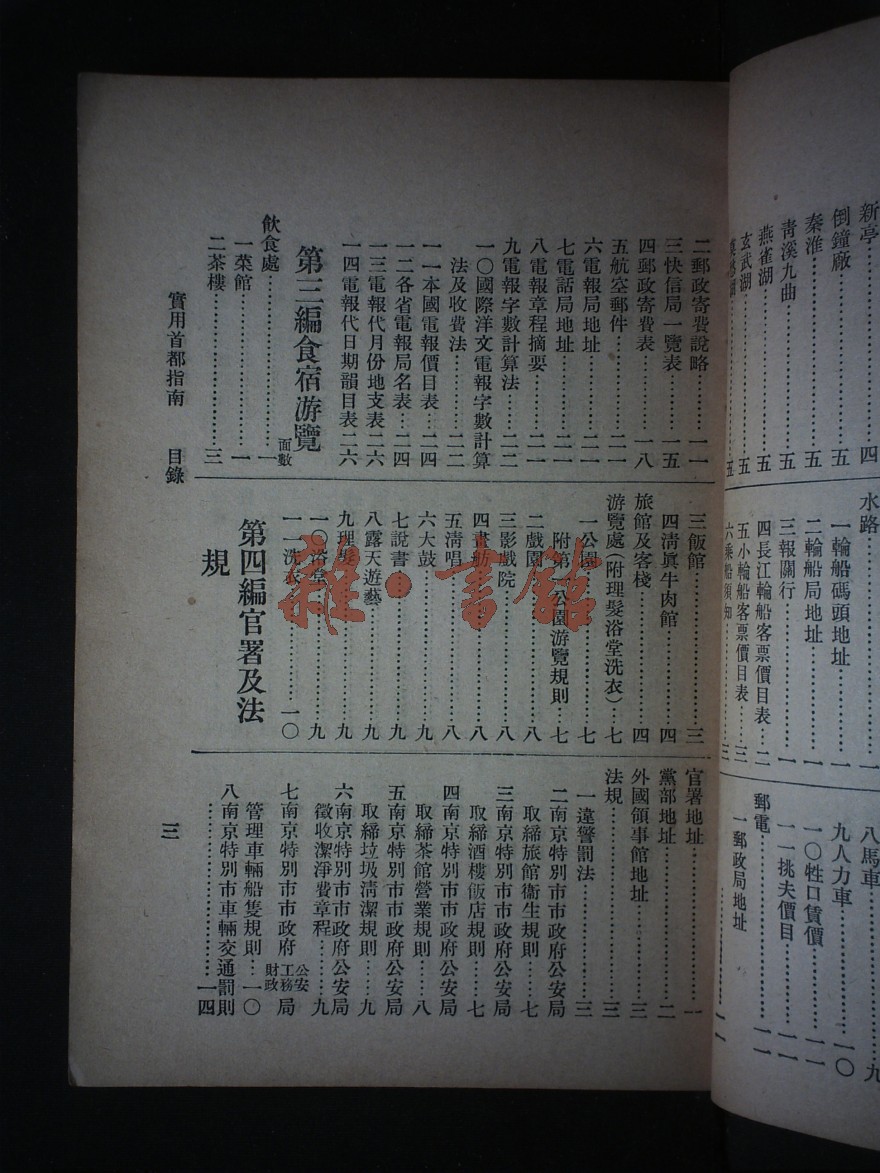 新亭……………四
倒鐘廠…………五
秦淮……………五
青溪九曲………五
燕雀湖…………五
玄武湖…………五
水路……………一
一輪船碼頭地址……一
二輪船局地址………一
三報關行……………一
四長江輪船客票價目表…二
五小輪船客票價目表…三
六乘船須知…………三
八馬車………………九
九人力車……………一〇
一〇牲口賃價………一一
一一挑夫價目………一一
郵電…………………一一
一郵政局地址………一一
二郵政寄費說略……一一
三快信局一覽表……一五
四郵政寄費表………一八
五航空郵件…………二一
六電報局地址………二一
七電話局地址………二一
八電報章程摘要……二一
九電報字數計算法…二二
一〇國際洋文電報字數計算
法及收費法…………二二
一一本國電報價目表…二四
一二各省電報局名表…二四
一三電報代月份地支表…二六
一四電報代日期韻目表二六
第三編食宿游覽
面數
飲食處………………一
一菜館………………一
二茶樓………………三
三飯館………………三
四清真牛肉館………四
旅館及客棧…………四
游覽處(附理髮浴堂洗衣)…七
一公園………………七
附第一公園游覽規則…七
二戲園………………八
三影戲院……………八
四畫舫………………八
五清唱………………八
六大鼓………………九
七說書………………九
八露天遊藝…………九
九理髮………………九
一〇浴堂……………九
一一洗衣……………一〇
第四編官署及法
規
官署地址……………一
黨部地址……………二
外國領事館地址……三
法規…………………三
一違警罰法…………三
二南京特別市市政府公安局
取締旅館衞生規則…七
三南京特別市市政府公安局
取締酒樓飯店規則…七
四南京特別市市政府公安局
取締茶館營業規則…八
五南京特別市市政府公安局
取締垃圾清潔規則…九
六南京特別市市政府公安局
徵收潔淨費章程……九
七南京特別市市政府公安工務財政局
管理車輛船隻規則…一〇
八南京特別市車輛交通罰則
…………………一四
實用首都指南 目錄
三
雜·書館